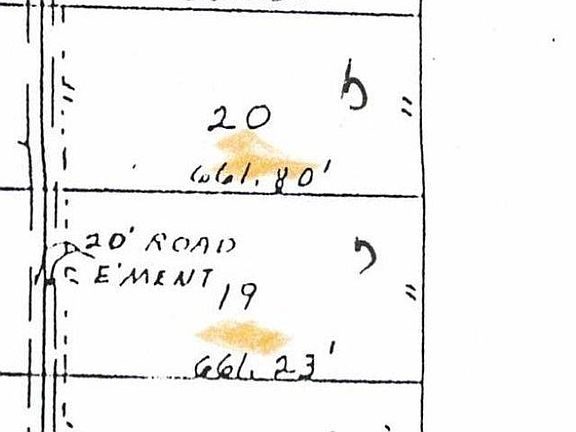 20
661.80'
20' ROAD
E'MENT
19
661.23'